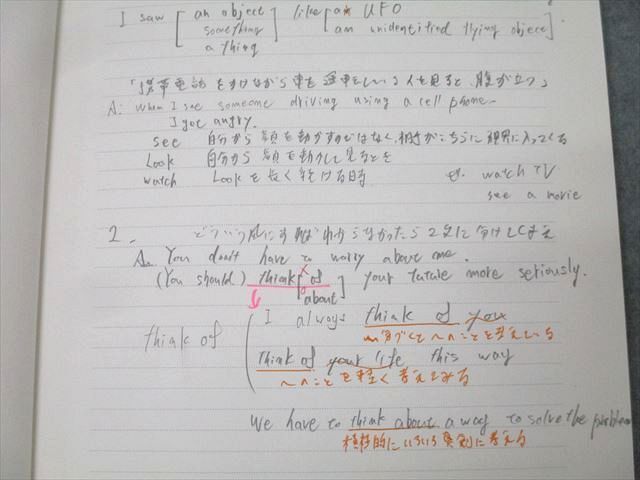 I saw [an object like [a UFO
something an unidentified flying object].
a thing
「携帯電話をかけながら車を運転している人を見ると、腹が立つ」
A: When I see someone driving using a cell phone.
I get angry.
see 自分から顔を動かすのではなく、相手がこちらに視界に入ってくる
Look 自分から顔を動かして見ること
watch Lookを長く続ける時 watch TV
see a movie
2. どういう風にすればわからなかったら2文に分けてしまえ
A. You don't have to worry about me.
(You should) think [of your future more seriously.
about]
think of
I always think of you
〜のことを考えている
Think of your life this way
〜のことを軽く考えてみる
We have to think about a way to solve the problem
積極的にいろいろ真剣に考える